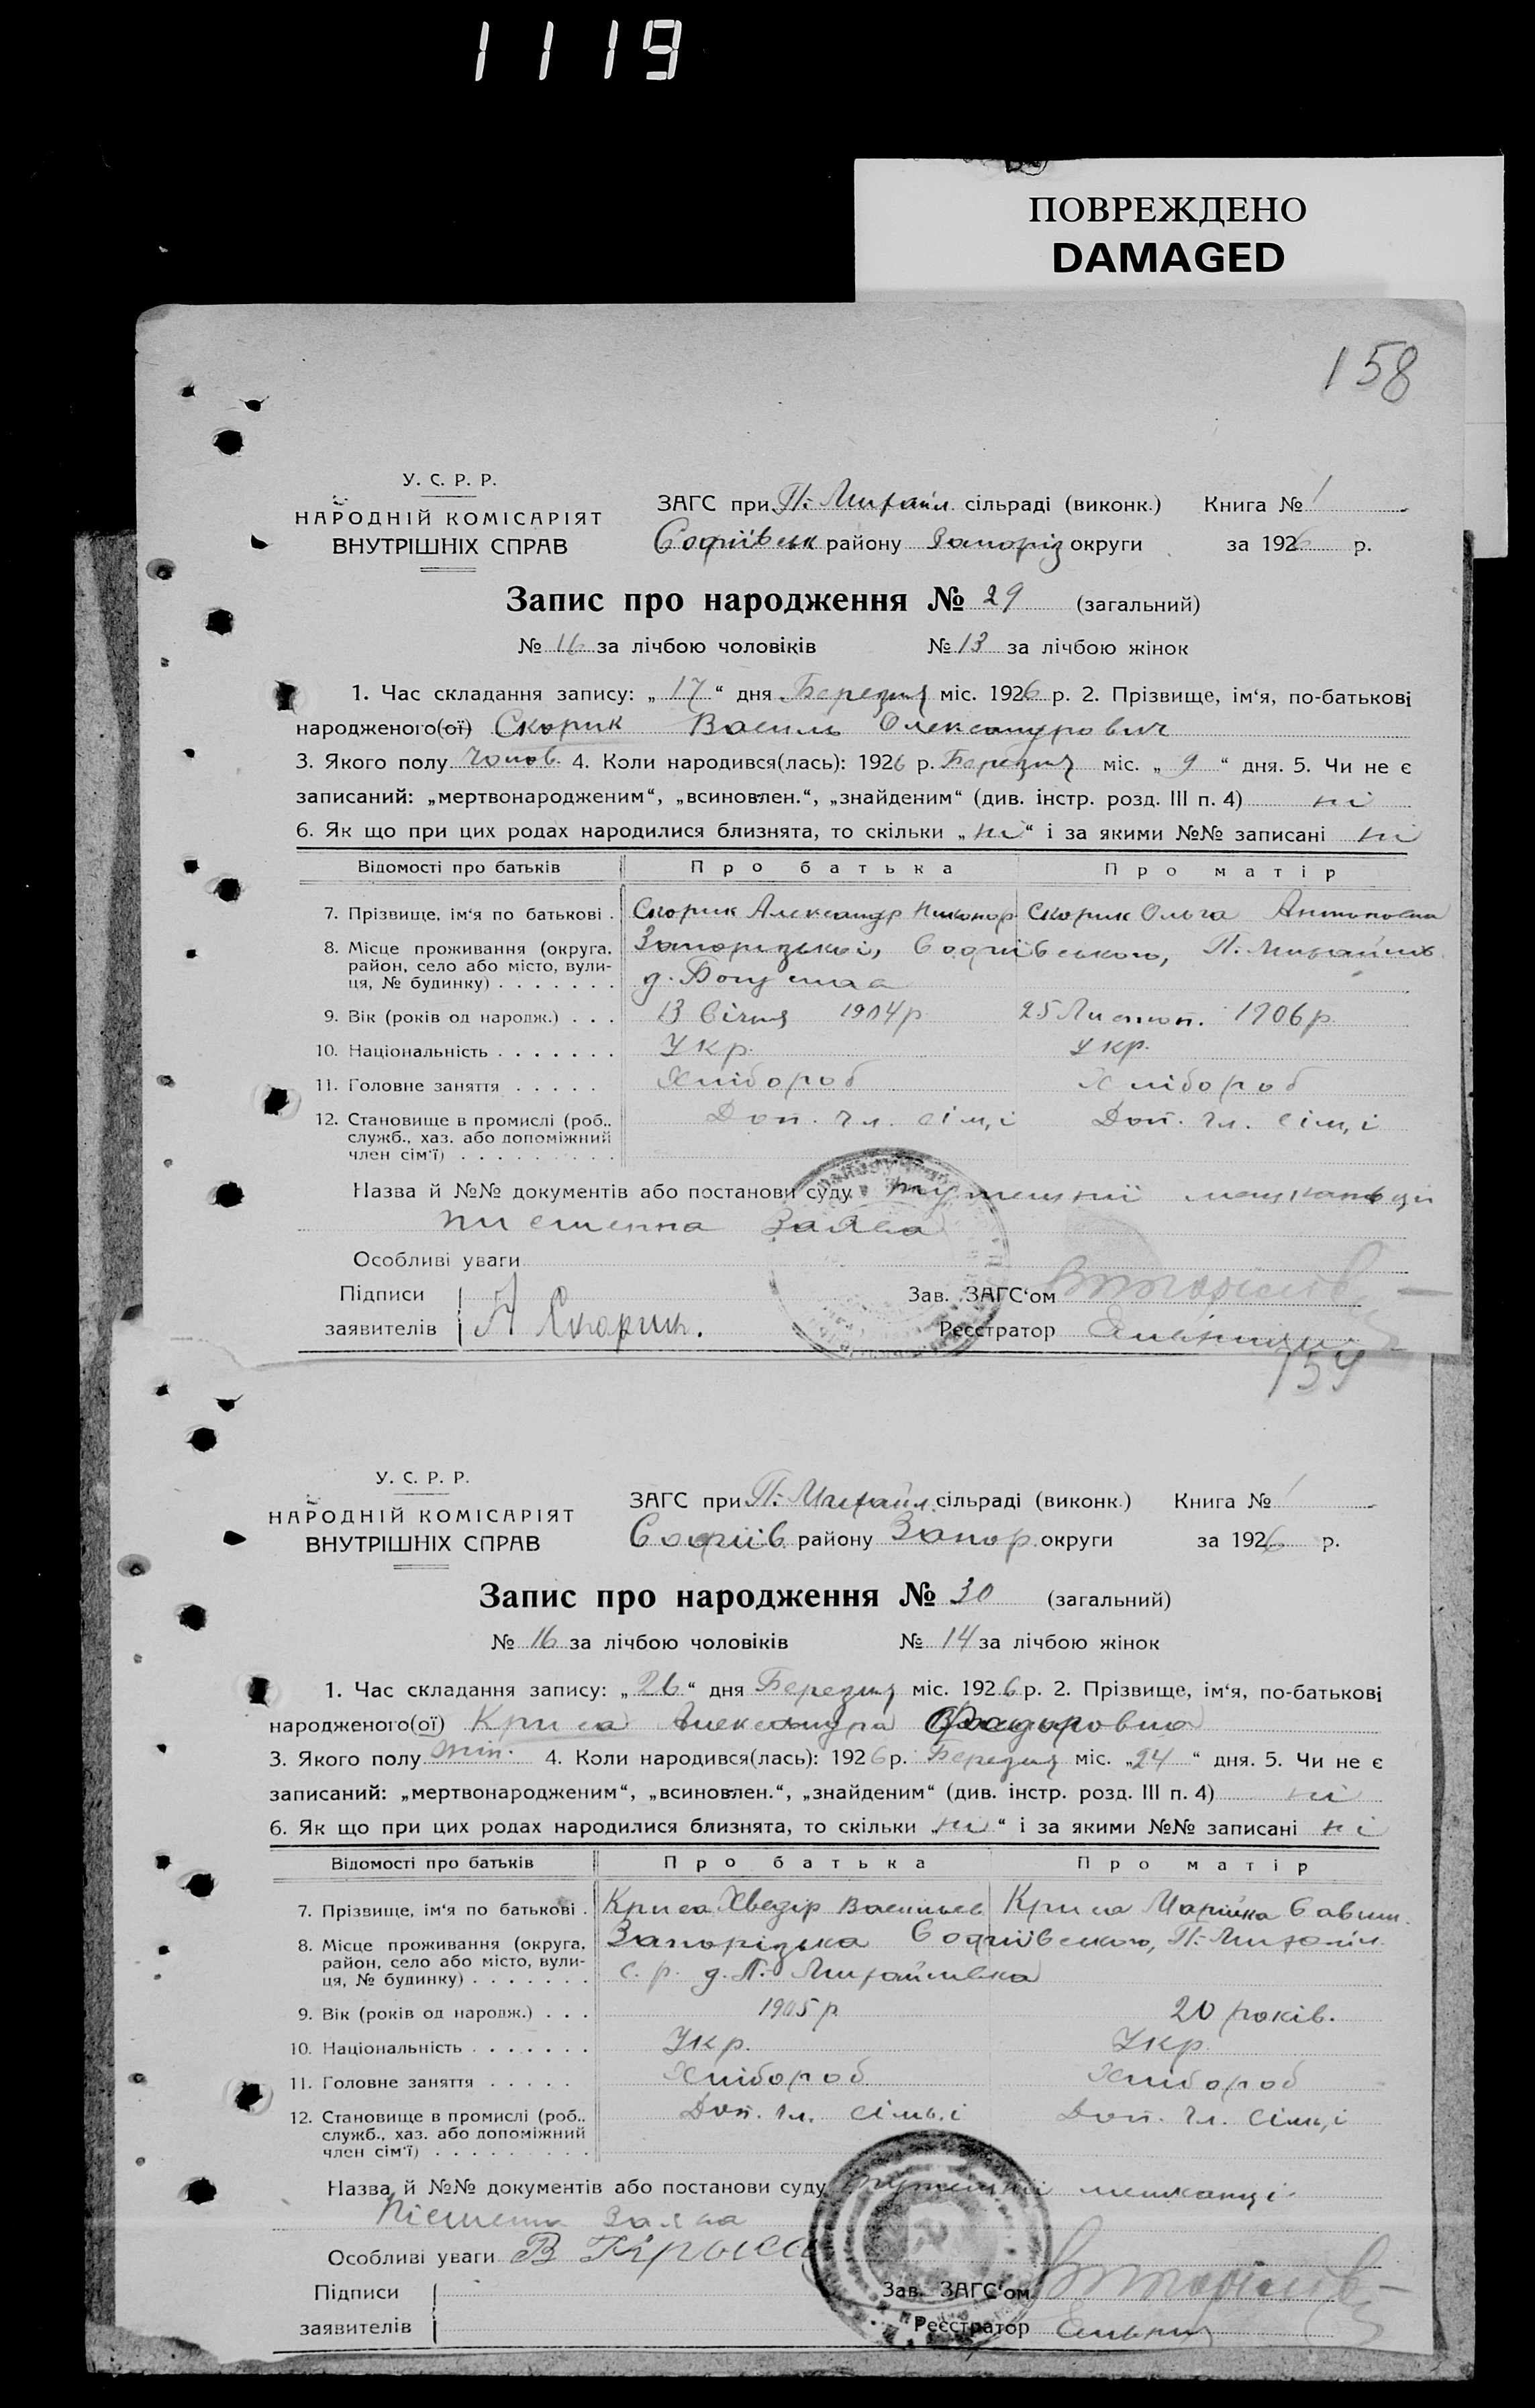 1119
ПОВРЕЖДЕНО
DAMAGED
158
У. С. Р. Р.
НАРОДНІЙ КОМІСАРІЯТ
ВНУТРІШНІХ СПРАВ
ЗАГС при П.-Михайл. сільраді (виконк.) Книга № 1
Софіївськ району Запоріз округи за 1926 р.
Запис про народження № 29 (загальний)
№ 16 за лічбою чоловіків № 13 за лічбою жінок
1. Час складання запису: „ 17 “ дня Березня міс. 1926 р. 2. Прізвище, ім‘я, по-батькові
народженого(ої) Скорик Василь Олександрович
3. Якого полу Чолов. 4. Коли народився(лась): 1926 р. Березня міс. „ 9 “ дня. 5. Чи не є
записаний: „мертвонародженим“, „всиновлен.“, „знайденим“ (див. інстр. розд. III п. 4) ні
6. Як що при цих родах народилися близнята, то скільки „ ні “ і за якими №№ записані ні
Відомості про батьків Про батька Про матір
7. Прізвище, ім‘я по батькові . Скорик Александр Никонор Скорик Ольга Антоновна
8. Місце проживання (округа, район, село або місто, вулиця, № будинку) Запорізької, Софіївського, П.-Михайлів.
д.
9. Вік (років од народж.) . . . 13 Січня 1904 р 25 Листоп. 1906 р.
10. Національність . . . . . . . Укр. Укр.
11. Головне заняття . . . . . Хлібороб Хлібороб
12. Становище в промислі (роб., Доп. чл. сім,і Доп. чл. сім,і
служб., хаз. або допоміжний
член сім‘ї) . . . . . . . . .
Назва й №№ документів або постанови суду тутешнії мешканьці
писменна Заява
Особливі уваги
Підписи Зав. ЗАГС‘ом
заявителів А Скорик. Реєстратор
159
У. С. Р. Р.
НАРОДНІЙ КОМІСАРІЯТ
ВНУТРІШНІХ СПРАВ
ЗАГС при П.-Михайл. сільраді (виконк.) Книга № 1
Софіїв. району Запор. округи за 1926 р.
Запис про народження № 30 (загальний)
№ 16 за лічбою чоловіків № 14 за лічбою жінок
1. Час складання запису: „ 26 “ дня Березня міс. 1926 р. 2. Прізвище, ім‘я, по-батькові
народженого(ої) Криса Александра Фадоровна
3. Якого полу жін. 4. Коли народився(лась): 1926 р. Березня міс. „ 24 “ дня. 5. Чи не є
записаний: „мертвонародженим“, „всиновлен.“, „знайденим“ (див. інстр. розд. III п. 4) ні
6. Як що при цих родах народилися близнята, то скільки „ ні “ і за якими №№ записані ні
Відомості про батьків Про батька Про матір
7. Прізвище, ім‘я по батькові . Криса Хведір Васильев Криса Марійка Савит.
8. Місце проживання (округа, район, село або місто, вулиця, № будинку) Запорізька Софіївського, П.-Михайл.
с. р. д. П.-Михайлівка
9. Вік (років од народж.) . . . 1905 р 20 років.
10. Національність . . . . . . . Укр. Укр.
11. Головне заняття . . . . . Хлібороб Хлібороб
12. Становище в промислі (роб., Доп. чл. сімь,і Доп. чл. Сімь,і
служб., хаз. або допоміжний
член сім‘ї) . . . . . . . . .
Назва й №№ документів або постанови суду тутешнії мешканці
Пісменна Заява
Особливі уваги В Крыса
Підписи Зав. ЗАГС‘ом
заявителів Реєстратор